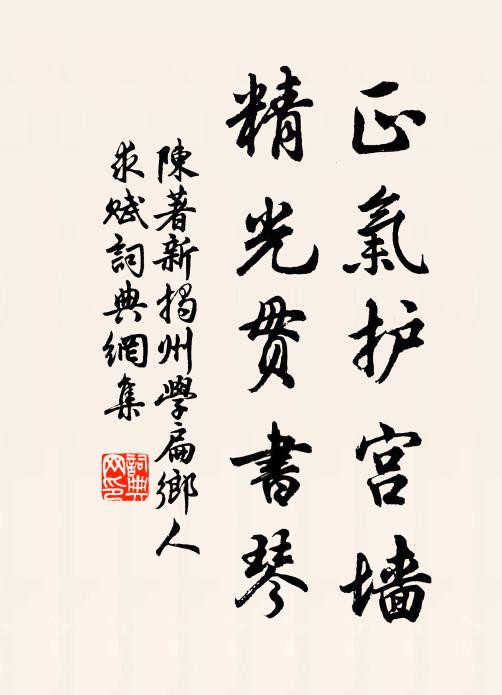 正氣护宫墙
精光贯書琴
陳著新揭州學扁鄉人
求赋詞典網集
詞典网印